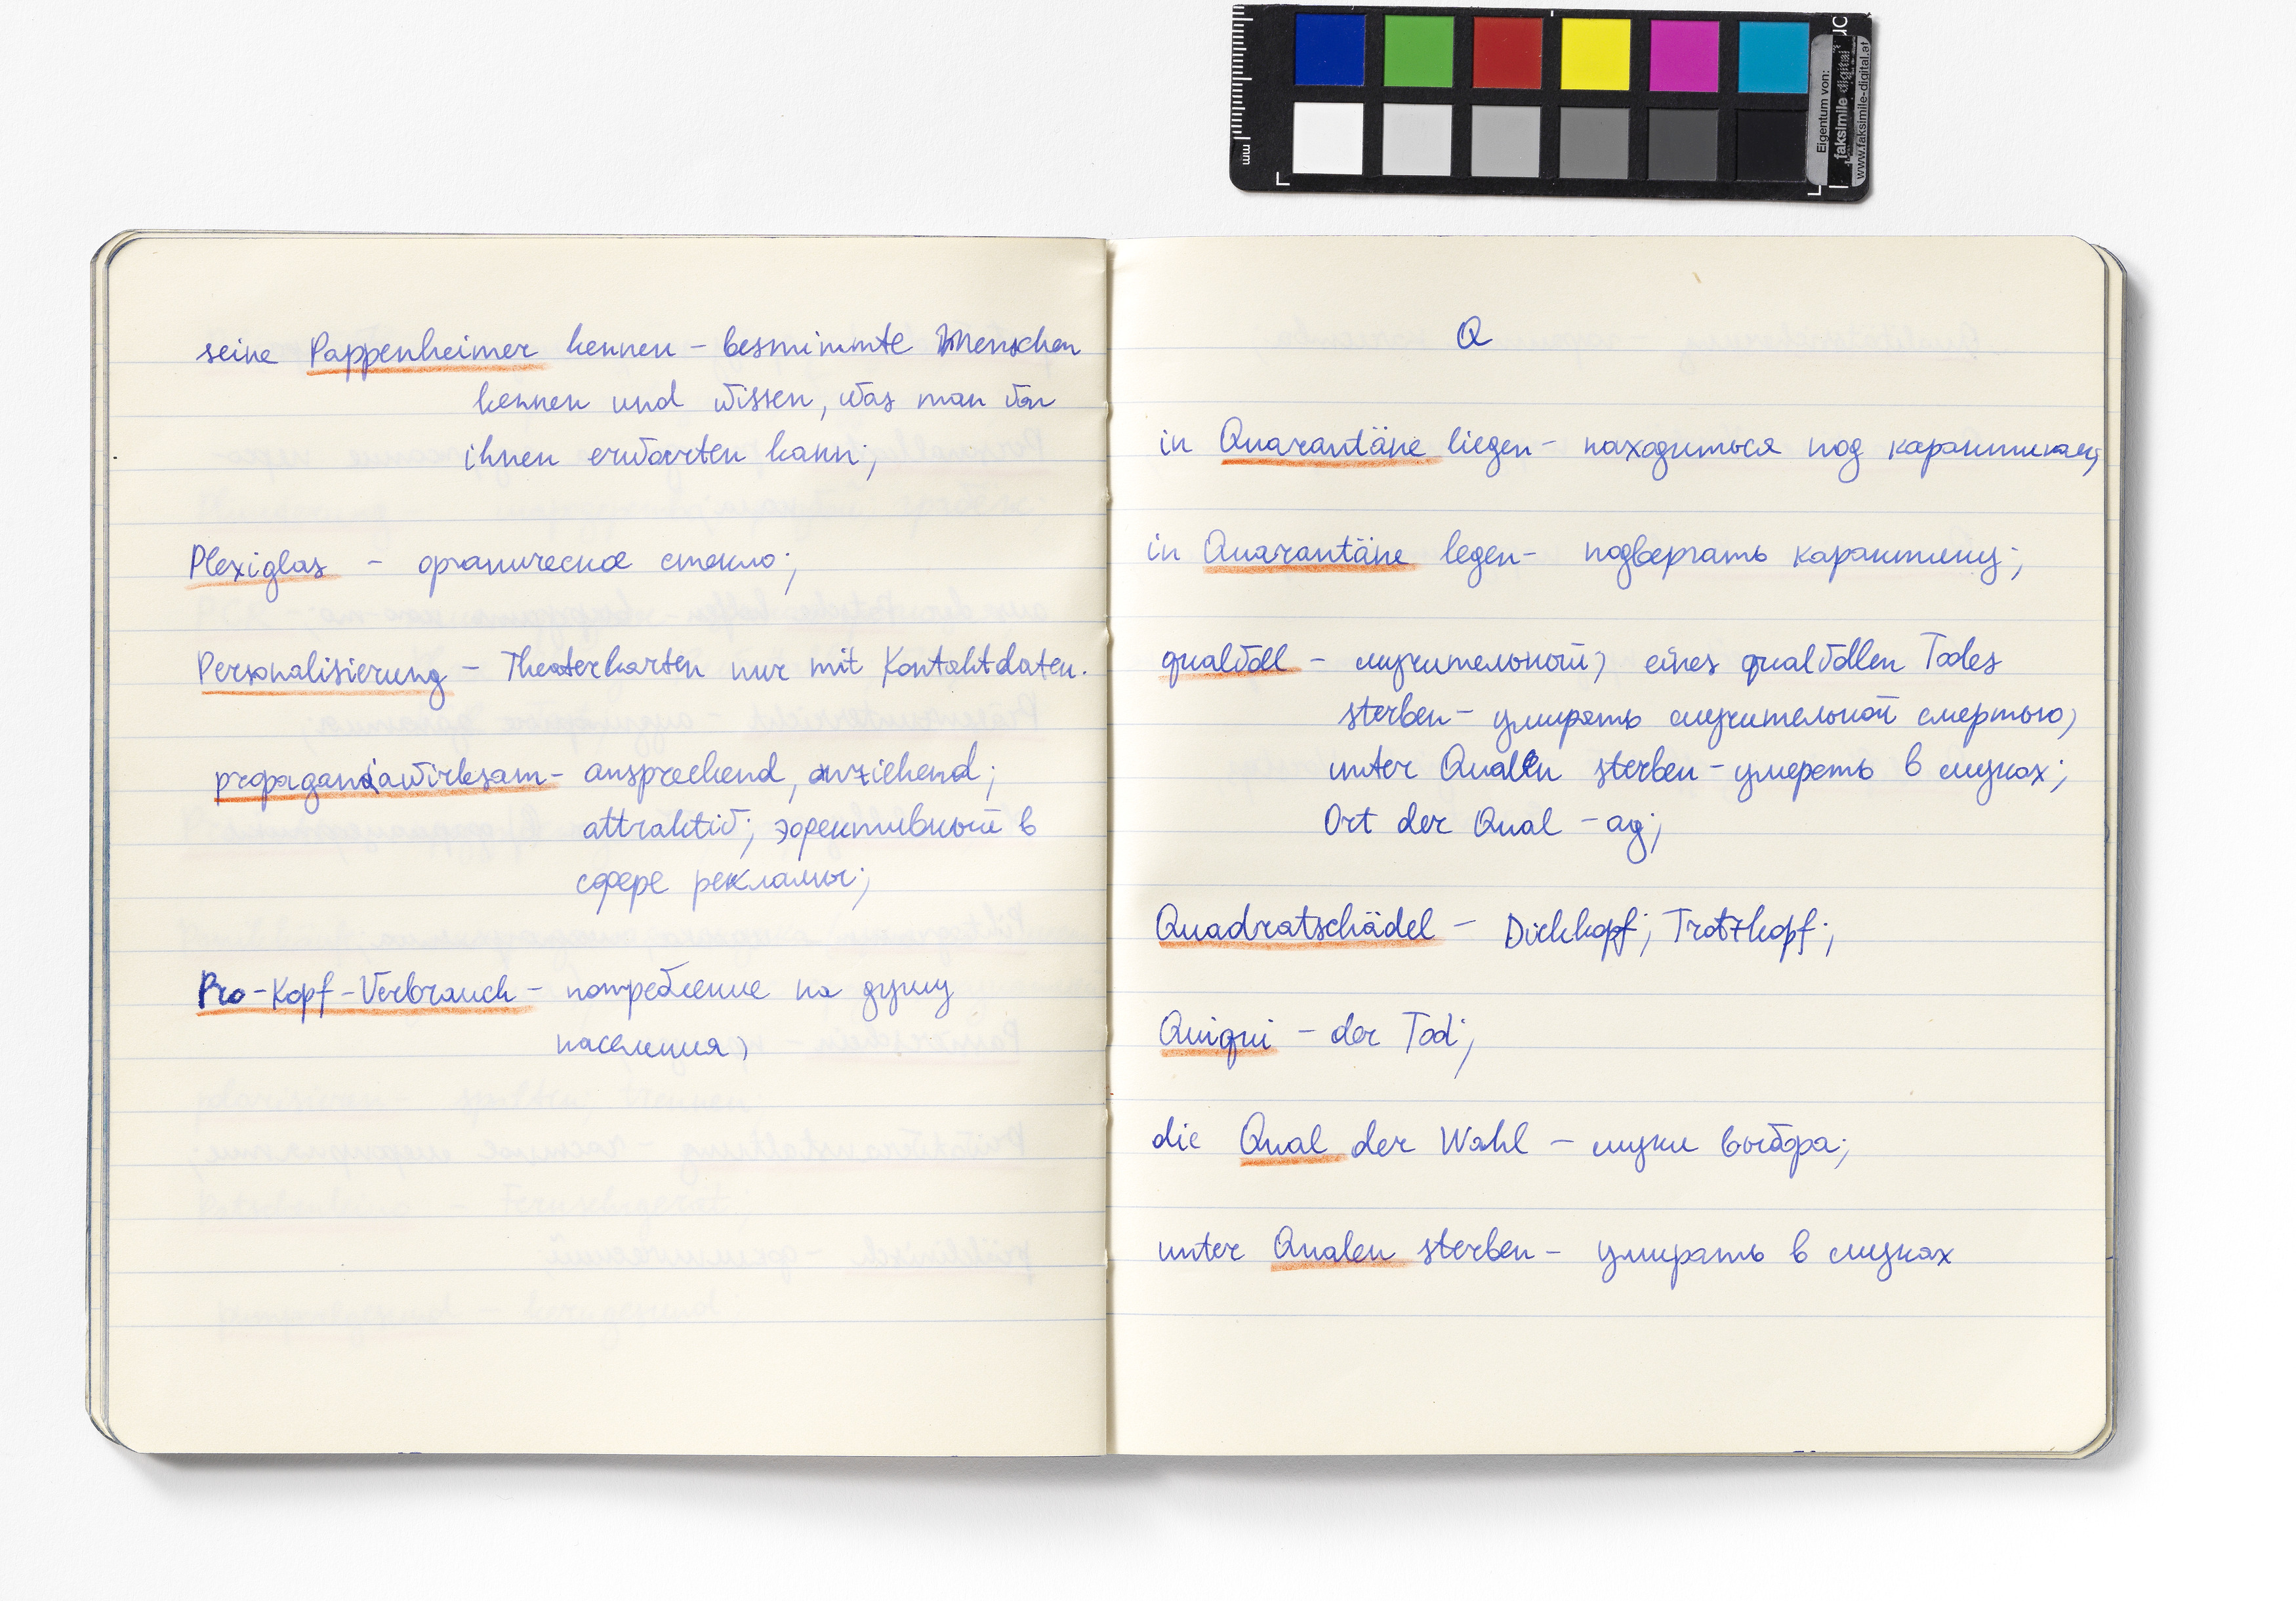 seine Pappenheimer kennen – besmimmte Menschen
kennen und wissen, was man von
ihnen erwarten kann;
Plexiglas – органическое стекло;
Personalisierung – Theaterkarten nur mit Kontaktdaten.
propagandawirksam – ansprechend, anziehend;
attraktiv; эфективный в
сфере рекламы;
Pro-Kopf-Verbrauch – потребление на душу
населения;
Q
in Quarantäne liegen – находиться под карантином;
in Quarantäne legen – подвергать карантину;
qualvoll – мучительный; eines qualvollen Todes
sterben – умирать мучительной смертью;
unter Qualen sterben – умереть в муках;
Ort der Qual – ад;
Quadratschädel – Dickkopf; Trotzkopf;
Quiqui – der Tod;
die Qual der Wahl – муки выбора;
unter Qualen sterben – умирать в муках
mm
Eigentum von:
faksimile digital
www.faksimile-digital.at